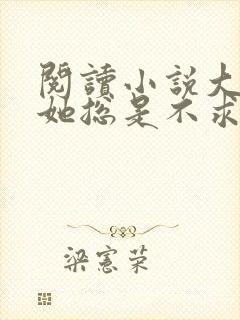 閱讀小説大
她總是不求
梁憲榮